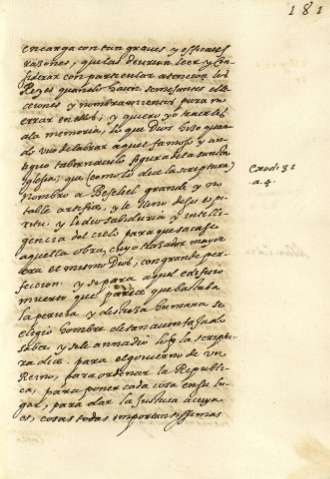 181
encarga con tan graves y efficaces
razones, que las devrian leer y con
siderar con particular atencion los
Reyes quando hacen semejantes ele
ciones y nombramientos para no
errar en ellos, y quiero yo traerles
a la memoria, lo que Dios hizo quan
do vuo de labrar aquel famoso y an
tiguo tabernaculo figura de la sancta
yglesia, que (como lo dice la scriptura)
Nombro a Beseleel grande y no
table artifice, y le lleno de su espi
ritu, y le dio sabiduria y inteli
gencia del cielo para que sacasse
aquella obra, cuyo trazador mayor
era el mismo Dios, con grande per
feccion. y si para aquel edificio
muerto que parece que bastaba
la pericia y destreza humana se
eligio hombre de tan aventajado
saber, y se le annadio lo que la scriptu
ra dice. para el govierno de un
Reino, para ordenar la Republi
ca, para poner cada cosa en su lu
gar, para dar la justicia a cuya
es, cosas todas importantissimas
Exodi 31
a. 4.